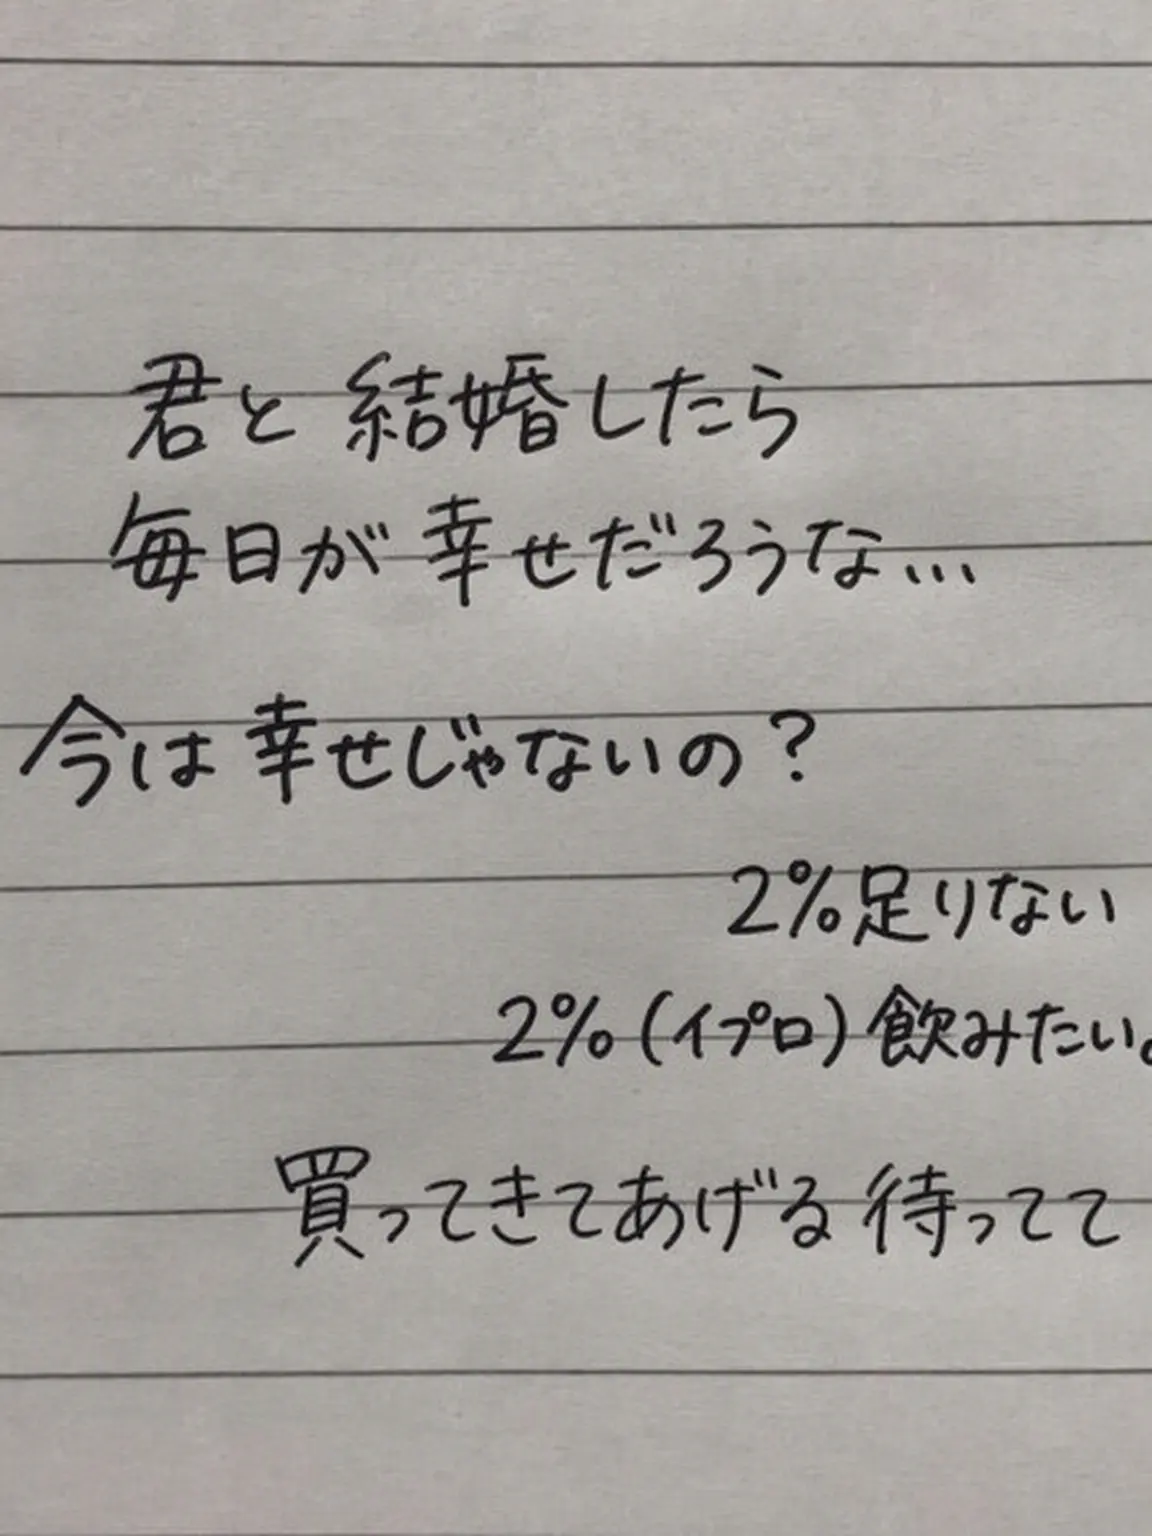 君と結婚したら
毎日が幸せだろうな...
今は幸せじゃないの?
2%足りない
2%(イプロ)飲みたい。
買ってきてあげる待ってて